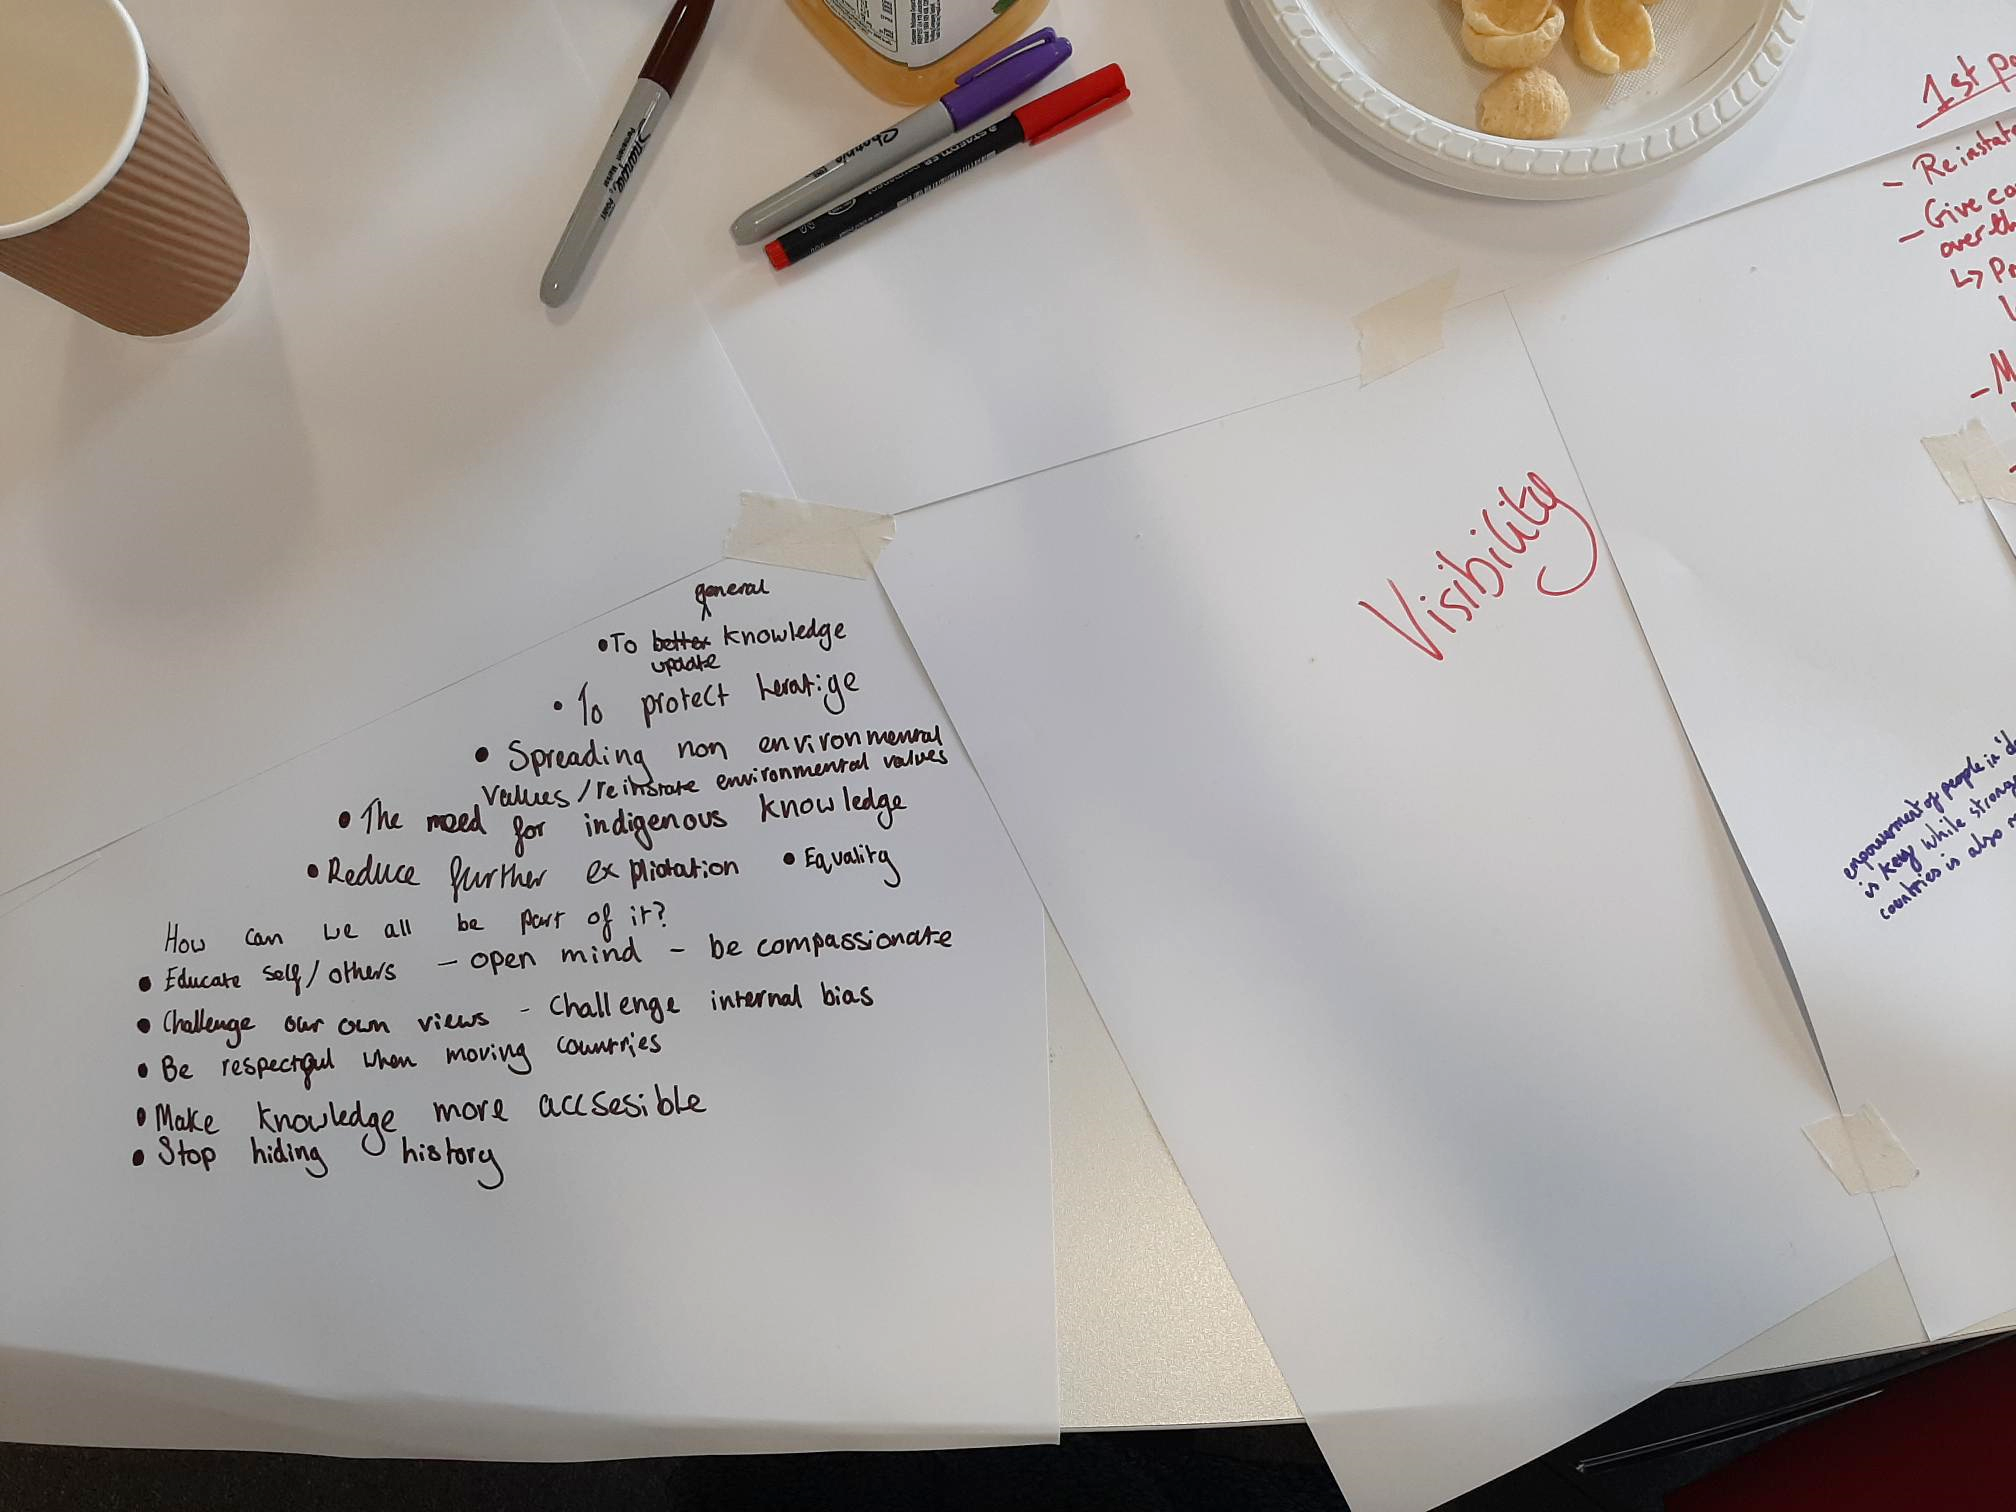 general
•To better knowledge
update
• To protect heratige
• Spreading non environmental
values/reinstate environmental values
• The need for indigenous knowledge
• Reduce further expliotation • Equality
How can we all be part of it?
• Educate self/others – open mind – be compassionate
• Challenge our own views - Challenge internal bias
• Be respectful when moving countries
• Make knowledge more accsesible
• Stop hiding history
Visibility
1st
- Reinstat
- Give
over th
- M
empowerment of people in
is key while strong
countries is also
Sharpie
STAEDTLER permanent
Sharpie
Permanent Marker
POINT